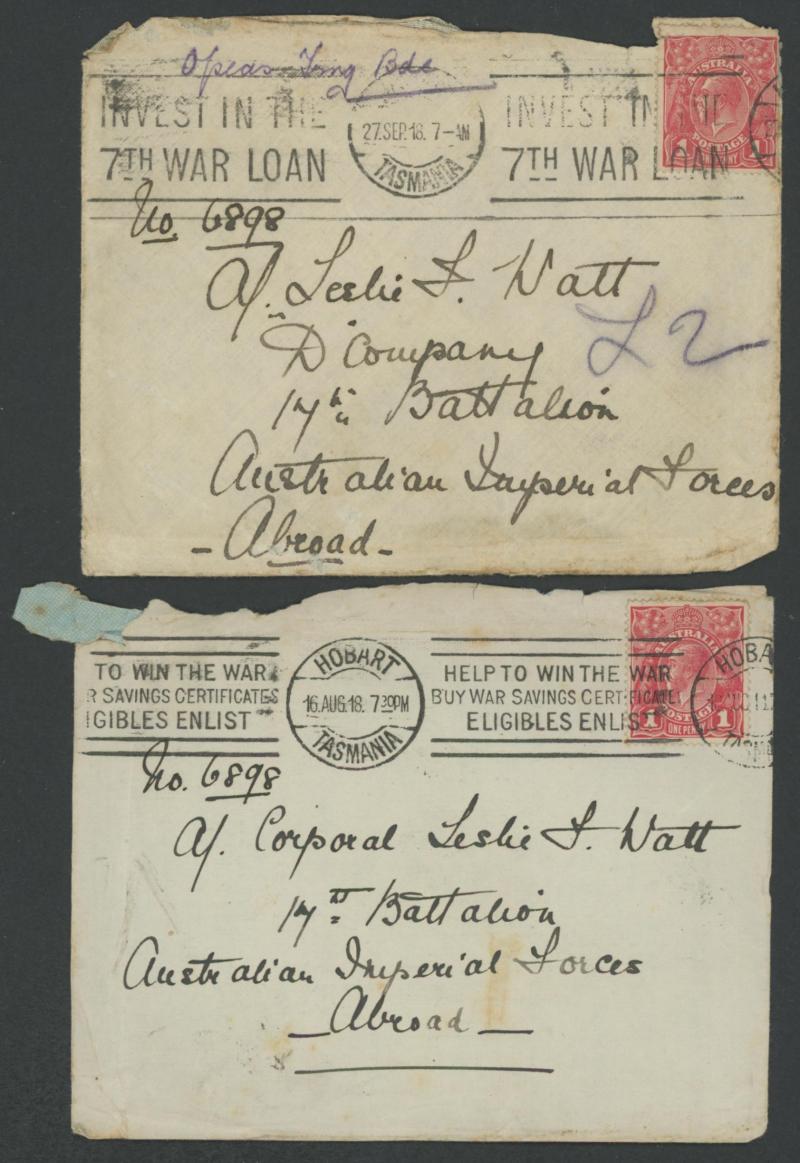 INVEST IN THE
7TH WAR LOAN
27.SEP.18. 7-AM
TASMANIA
INVEST IN THE
7TH WAR LOAN
AUSTRALIA
POSTAGE
1
No. 6898
A/. Leslie F. Watt
"D" Company
17th Battalion
L 2
Australian Imperial Forces
- Abroad -
TO WIN THE WAR
R SAVINGS CERTIFICATES
IGIBLES ENLIST
HOBART
16.AUG.18. 730PM
TASMANIA
HELP TO WIN THE WAR
BUY WAR SAVINGS CERTIFICATE
ELIGIBLES ENLIST
AUSTRALIA
POSTAGE
1 ONE PENNY 1
HOBA
No. 6898
A/. Corporal Leslie F. Watt
17th Battalion
Australian Imperial Forces
- Abroad -